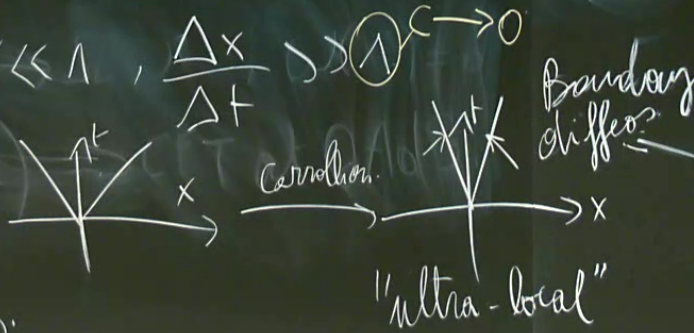 << 1 , Δx / Δt >> 1 C → 0
Boundary
diffeos
t
x
Carrollian.
t
x
"ultra-local"